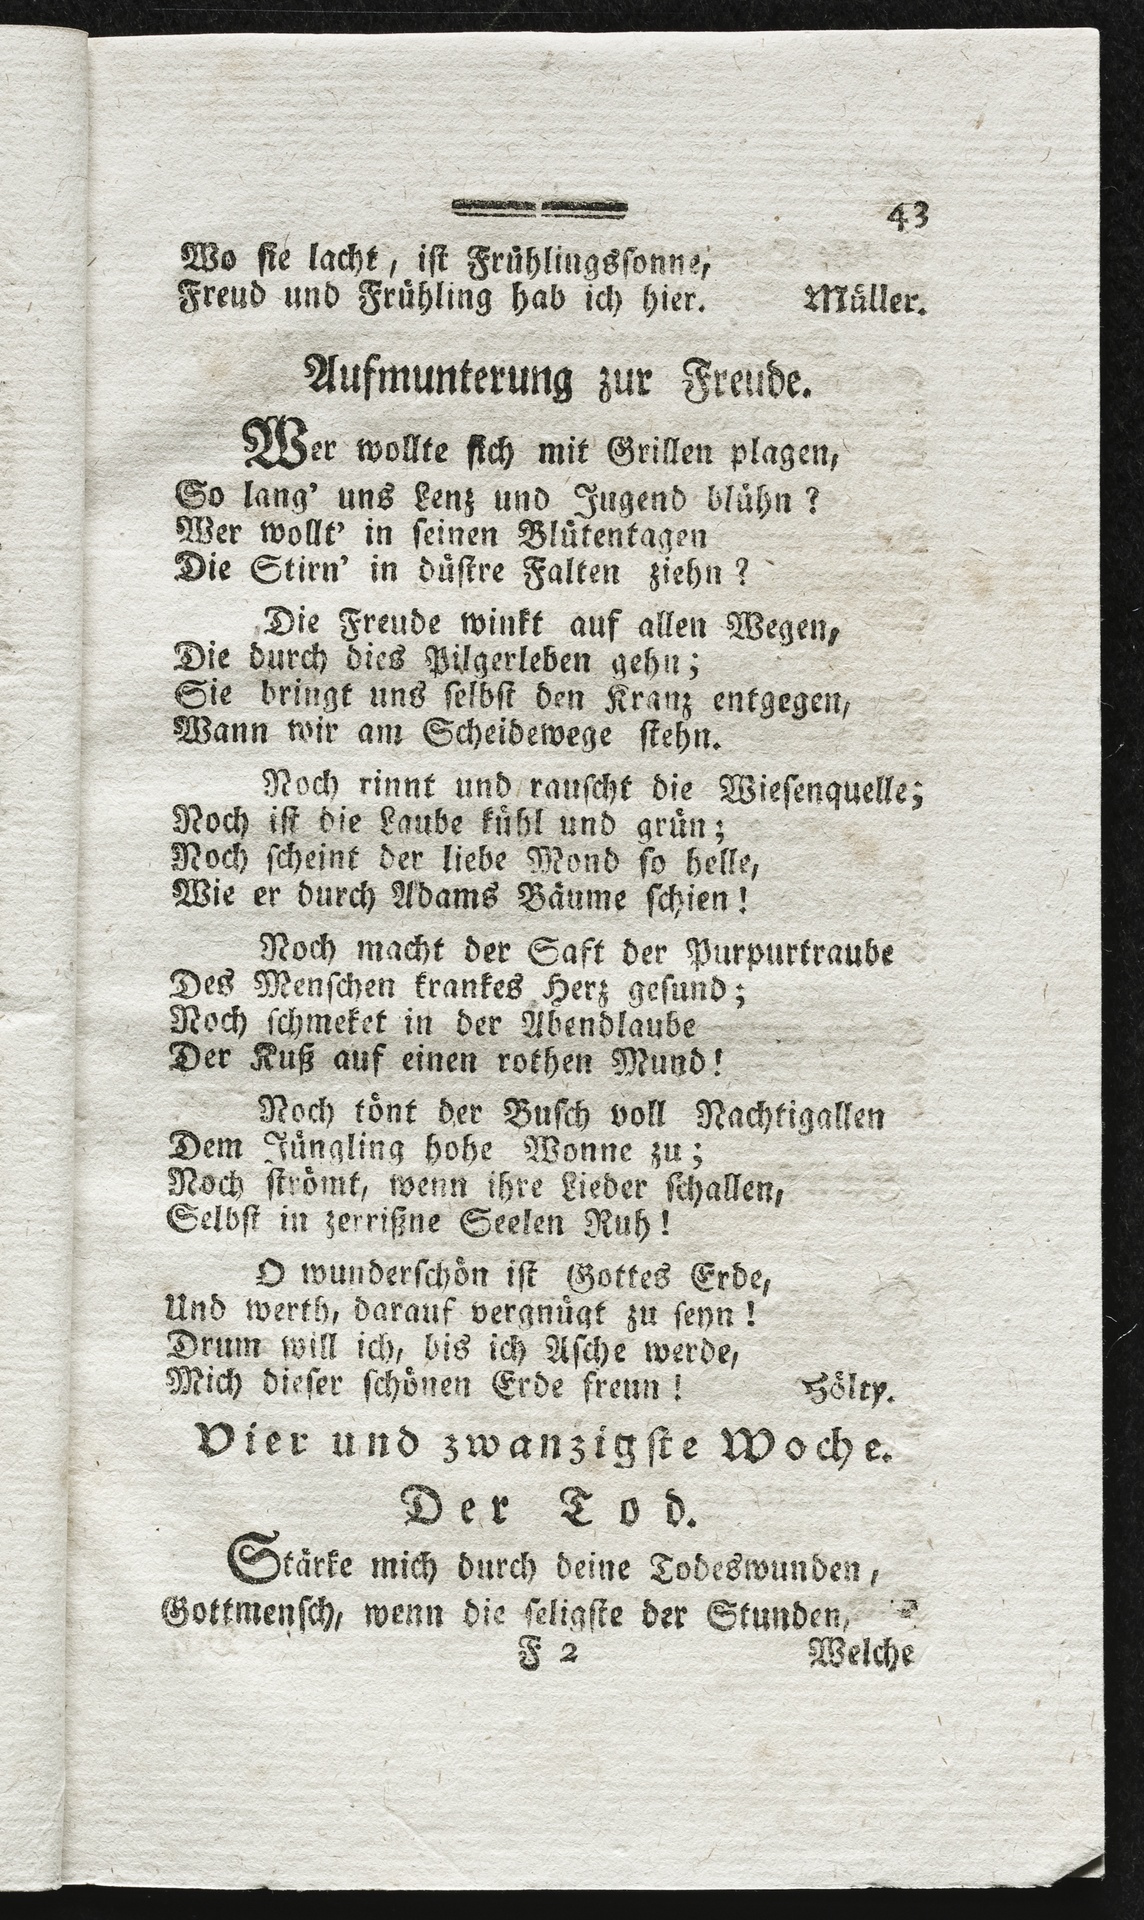 43
Wo ſie lacht, iſt Frühlingsſonne,
Freud und Frühling hab ich hier. Müller.
Aufmunterung zur Freude.
Wer wollte ſich mit Grillen plagen,
So lang' uns Lenz und Jugend blühn?
Wer wollt' in ſeinen Blütentagen
Die Stirn' in düſtre Falten ziehn?
Die Freude winkt auf allen Wegen,
Die durch dies Pilgerleben gehn;
Sie bringt uns ſelbſt den Kranz entgegen,
Wann wir am Scheidewege ſtehn.
Noch rinnt und rauſcht die Wieſenquelle;
Noch iſt die Laube kühl und grün;
Noch ſcheint der liebe Mond ſo helle,
Wie er durch Adams Bäume ſchien!
Noch macht der Saft der Purpurtraube
Des Menſchen krankes Herz geſund;
Noch ſchmeket in der Abendlaube
Der Kuß auf einen rothen Mund!
Noch tönt der Buſch voll Nachtigallen
Dem Jüngling hohe Wonne zu;
Noch ſtrömt, wenn ihre Lieder ſchallen,
Selbſt in zerrißne Seelen Ruh!
O wunderſchön iſt Gottes Erde,
Und werth, darauf vergnügt zu ſeyn!
Drum will ich, bis ich Aſche werde,
Mich dieſer ſchönen Erde freun! Hölty.
Vier und zwanzigſte Woche.
Der Tod.
Stärke mich durch deine Todeswunden,
Gottmenſch, wenn die ſeligſte der Stunden,
F 2 Welche